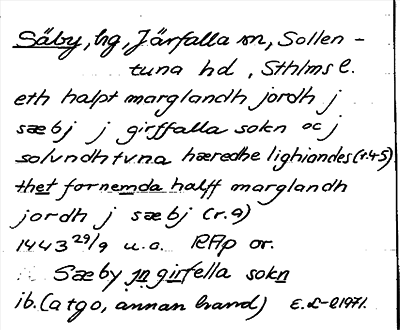 Säby, hg, Järfalla sn, Sollen-
tuna hd, Sthlms l.
eth halpt marglandh jordh j
sæbj j girffalla sokn oc j
solvndhtvna hæredhe lighiandes (r.45)
thet fornemda halff marglandh
jordh j sæbj (r.9)
1443 29/9 u.o. RAp or.
Sæby jn girfella sokn
ib. (atgo, annan hand) E.L-l 1971.